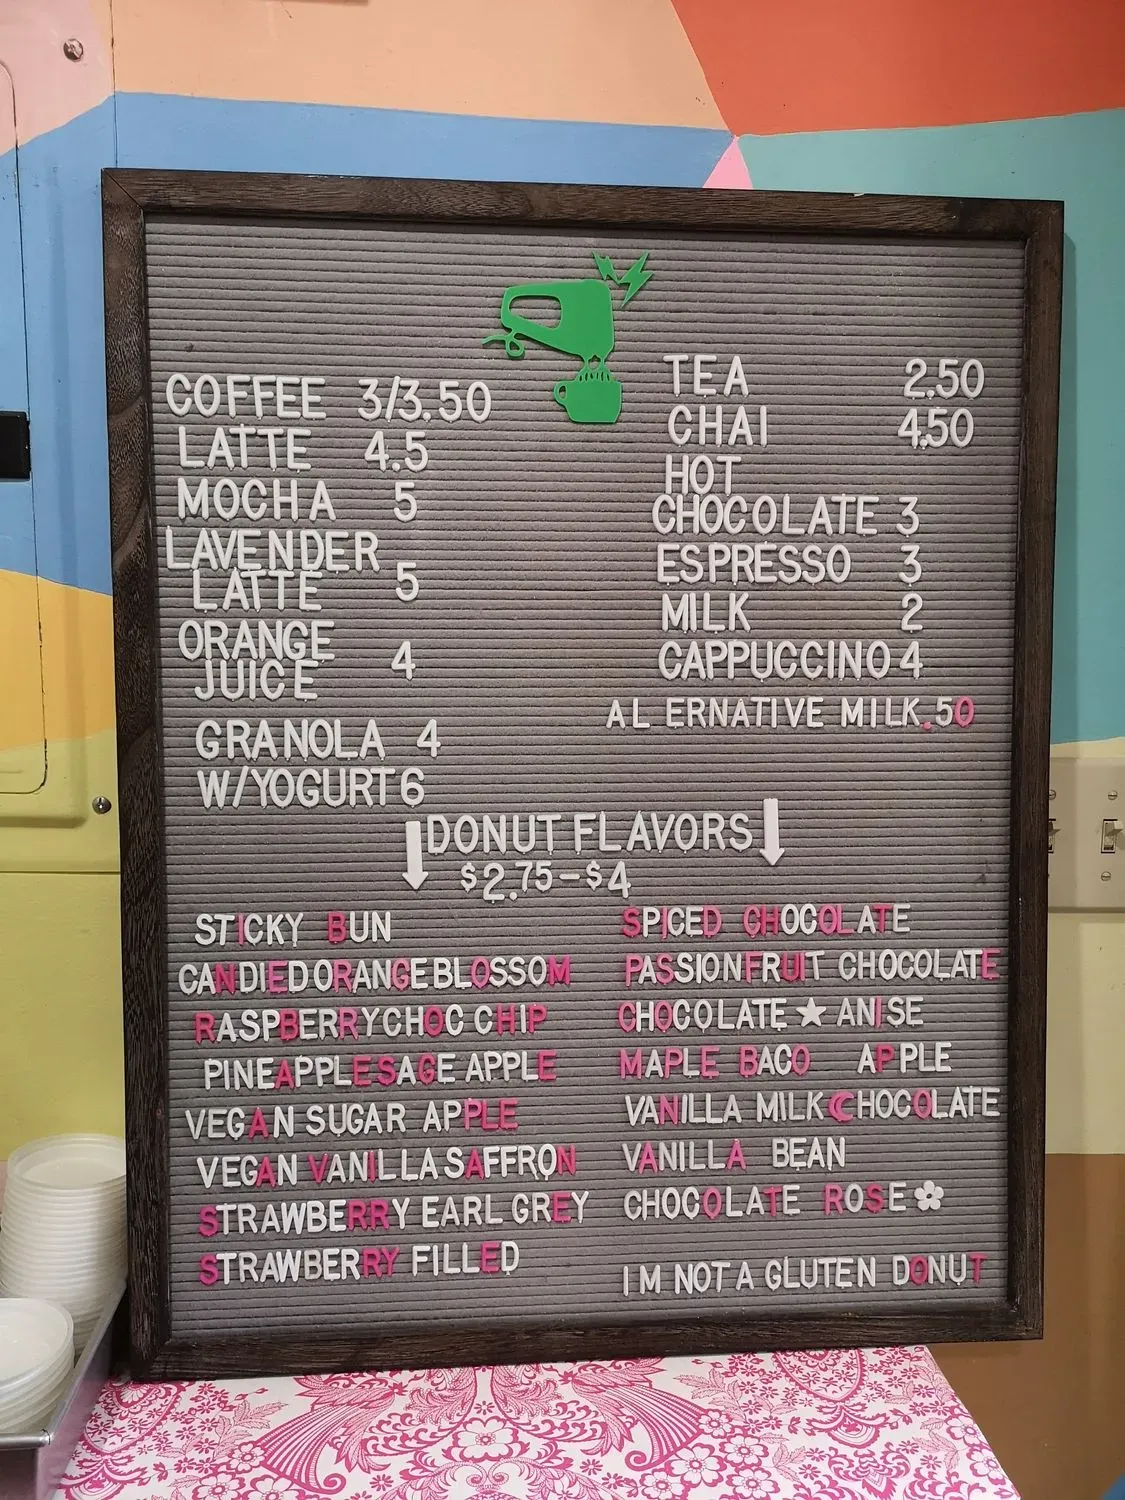 COFFEE 3/3.50
LATTE 4.5
MOCHA 5
LAVENDER
LATTE 5
ORANGE
JUICE 4
GRANOLA 4
W/YOGURT 6
TEA 2.50
CHAI 4.50
HOT
CHOCOLATE 3
ESPRESSO 3
MILK 2
CAPPUCCINO 4
AL ERNATIVE MILK .50
↓ DONUT FLAVORS ↓
$2.75-$4
STICKY BUN
CANDIED ORANGE BLOSSOM
RASPBERRY CHOC CHIP
PINEAPPLE SAGE APPLE
VEGAN SUGAR APPLE
VEGAN VANILLA SAFFRON
STRAWBERRY EARL GREY
STRAWBERRY FILLED
SPICED CHOCOLATE
PASSIONFRUIT CHOCOLATE
CHOCOLATE ★ ANISE
MAPLE BACO APPLE
VANILLA MILK CHOCOLATE
VANILLA BEAN
CHOCOLATE ROSE
IM NOT A GLUTEN DONUT